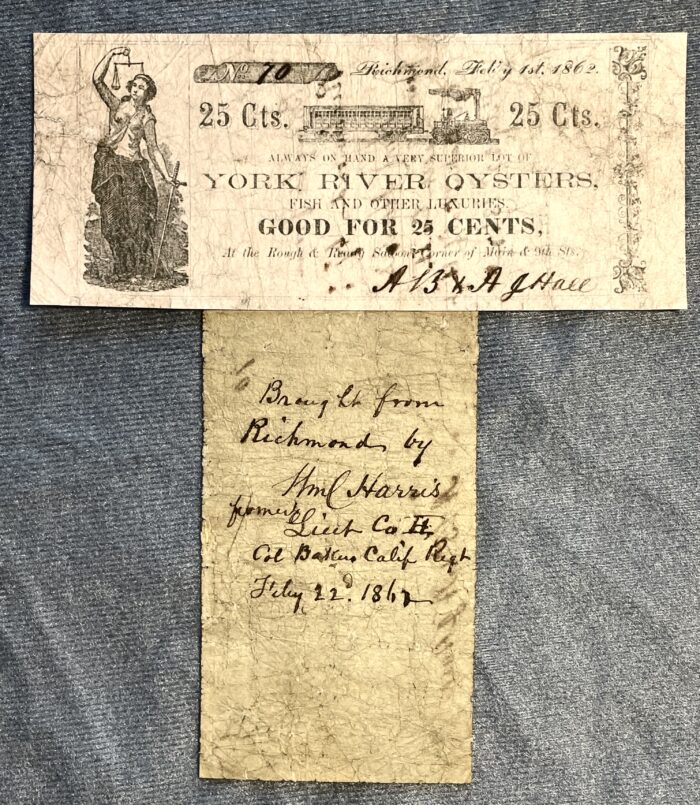 No 70 Richmond, Feb'y 1st, 1862.
25 Cts. 25 Cts.
ALWAYS ON HAND A VERY SUPERIOR LOT OF
YORK RIVER OYSTERS,
FISH AND OTHER LUXURIES.
GOOD FOR 25 CENTS,
At the Rough & Ready Saloon, Corner of Main & 9th Sts.
A B & A J Hall
Brought from
Richmond by
Wm C Harris
formerly
Lieut Co H,
Col Bakers Calif Regt
Feby 22d. 1862